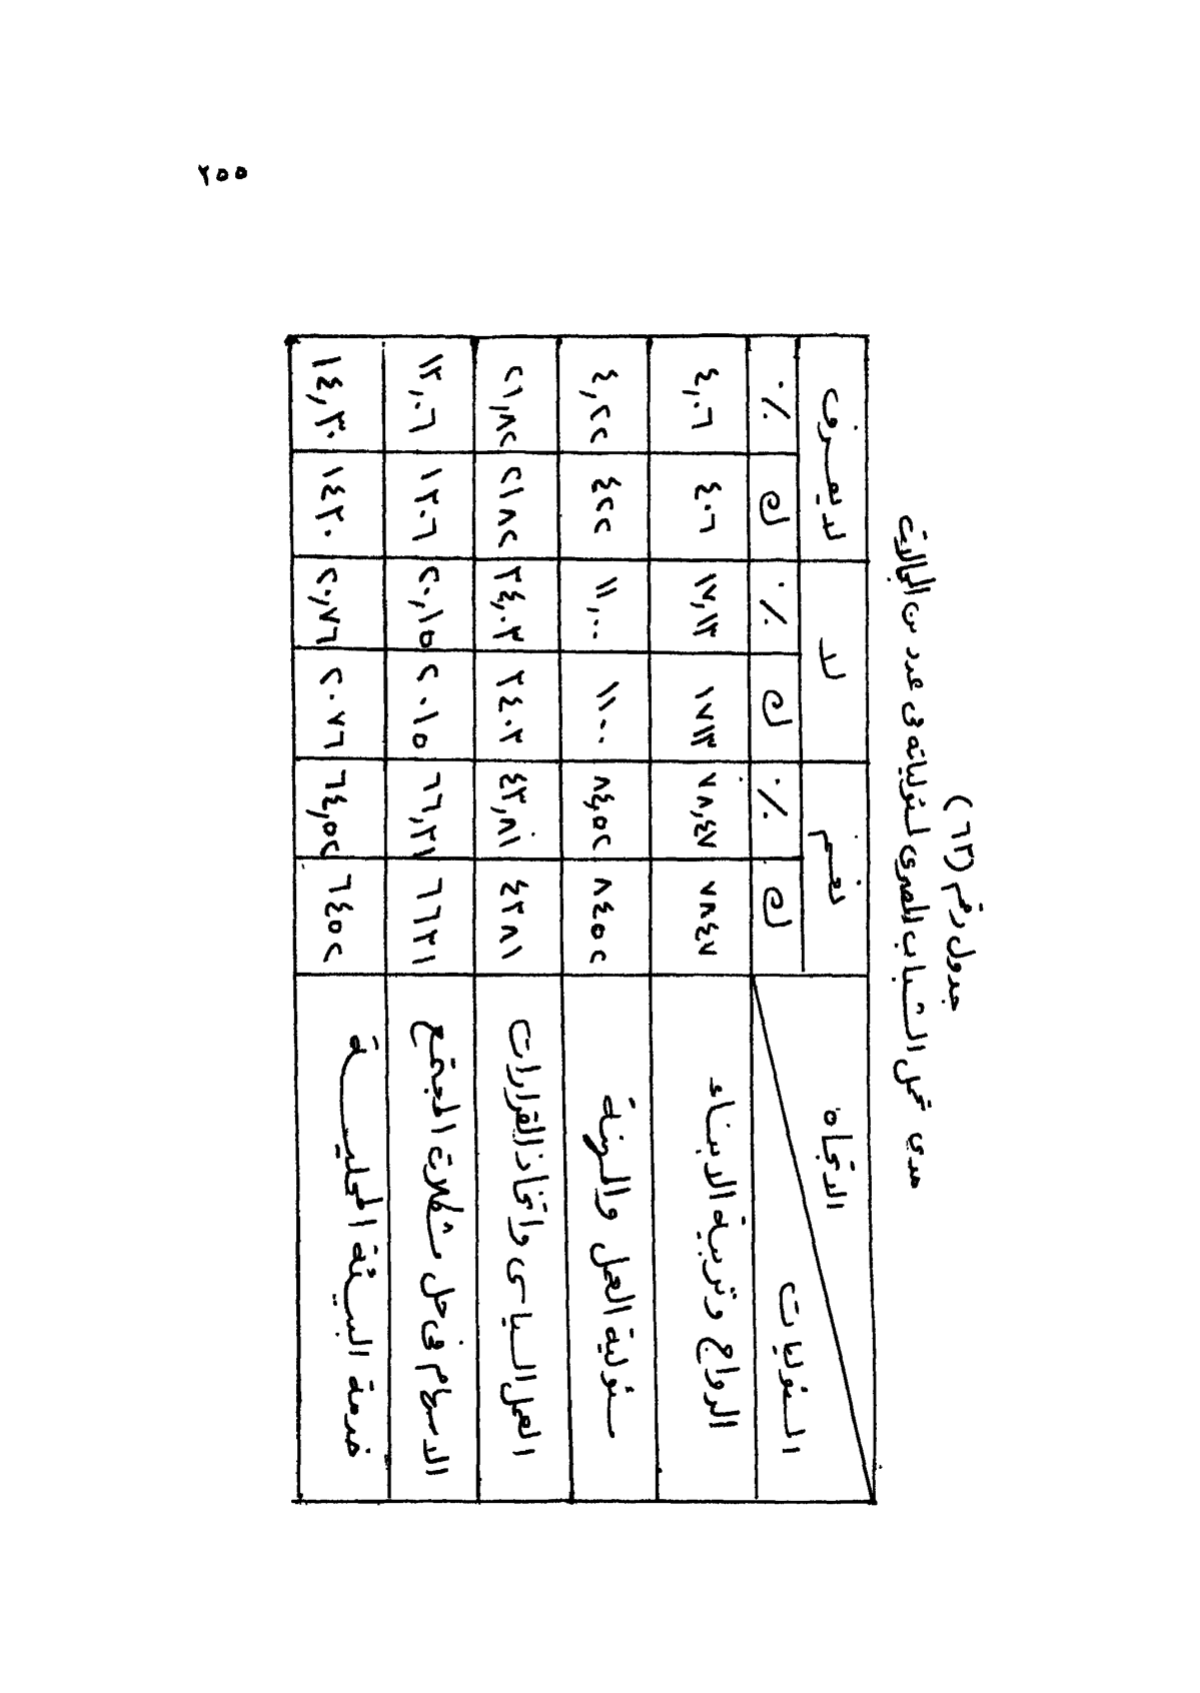 ٢٥٥
جدول رقم (٦٣)
مدى تحمل الشباب المصرى لمسئولياته فى عدد من المجالات
الاتجاه نعم لا لا يعرف
المسئوليات ك ٪ ك ٪ ك ٪
الزواج وتربية الابناء ٧٨٤٧ ٧٨,٤٧ ١٧١٣ ١٧,١٣ ٤٠٦ ٤,٠٦
مسئولية العمل والمهنة ٨٤٥٢ ٨٤,٥٢ ١١٠٠ ١١,٠٠ ٤٢٢ ٤,٢٢
العمل السياسى واتخاذ القرارات ٤٣٨١ ٤٣,٨١ ٣٤٠٣ ٣٤,٠٣ ٢١٨٢ ٢١,٨٢
الاسهام فى حل مشكلات المجتمع ٦٦٣١ ٦٦,٣١ ٢٠١٥ ٢٠,١٥ ١٣٠٦ ١٣,٠٦
خدمة البيئة المحلية ٦٤٥٢ ٦٤,٥٢ ٢٠٨٦ ٢٠,٨٦ ١٤٣٠ ١٤,٣٠